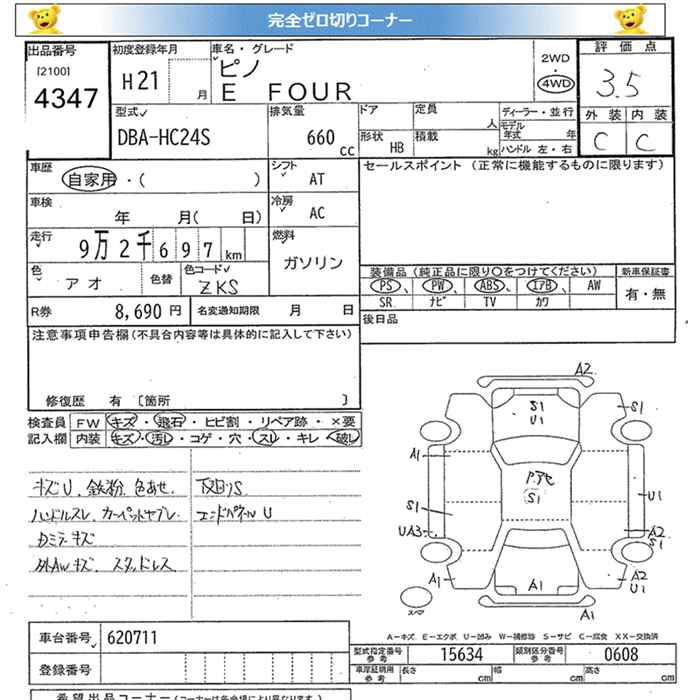 完全ゼロ切りコーナー
出品番号
[2100]
4347
初度登録年月
H21 月
車名・グレード
ピノ
E FOUR
2WD
4WD
評価点
3.5
外装 内装
C C
型式
DBA-HC24S
排気量
660 cc
ドア
定員 人
形状
HB
積載 kg
ディーラー・並行
モデル年式 年
ハンドル 左・右
車歴
自家用・( )
シフト
AT
セールスポイント (正常に機能するものに限ります)
車検
年 月( 日)
冷房
AC
走行
9万2千697km
燃料
ガソリン
色
アオ
色替
色コード
ZKS
装備品(純正品に限り○をつけてください)
新車保証書
PS、 PW、 ABS、 エアB、 AW
SR ナビ TV カワ
有・無
R券
8,690円
名変通知期限 月 日
後日品
注意事項申告欄(不具合内容等は具体的に記入して下さい)
修復歴 有 [箇所 ]
検査員記入欄
FW キズ・飛石・ヒビ割・リペア跡・×要
内装 キズ・汚レ・コゲ・穴・スレ・キレ・破レ
キズU、鉄粉、色あせ、
ハンドルスレ、カーペットヤブレ
Dミラーキズ
外AWキズ、スタッドレス
下廻りS
エンドパネルU
A2
S1
U1
S1
A1
P.アセ
S1
S1
U1
UA3
A2
S1
A1
A1
A2
U1
スペア
A1
A-キズ E-エクボ U-凹み W-補修跡 S-サビ C-腐食 XX-交換済
車台番号
620711
登録番号
型式指定番号 参考
15634
類別区分番号 参考
0608
車庫証明用 参考
長さ 幅 高さ
希望出品コーナー(コーナーは各会場により異なります)